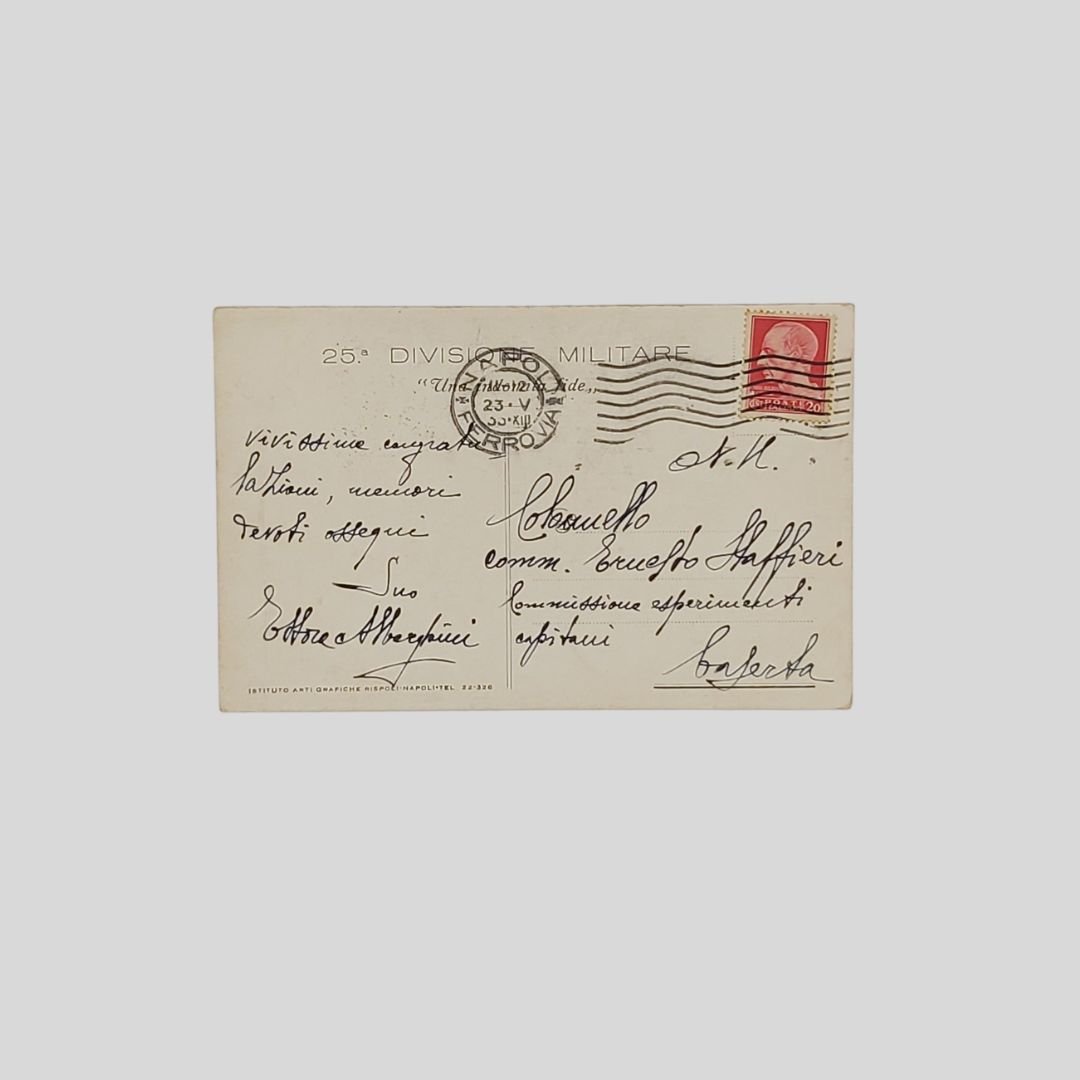 25.ª DIVISIONE MILITARE
“Una indomita fide„
NAPOLI
FERROVIA
23·V
35·XIII
POSTE ITALIANE
20
vivissime congratu
lazioni, memori
devoti ossequi
Suo
Ettore
N. H.
Colonnello
comm. Ernesto Staffieri
Commissione esperimenti
capitani
Caserta
ISTITUTO ARTI GRAFICHE RISPOLI·NAPOLI·TEL. 22-326